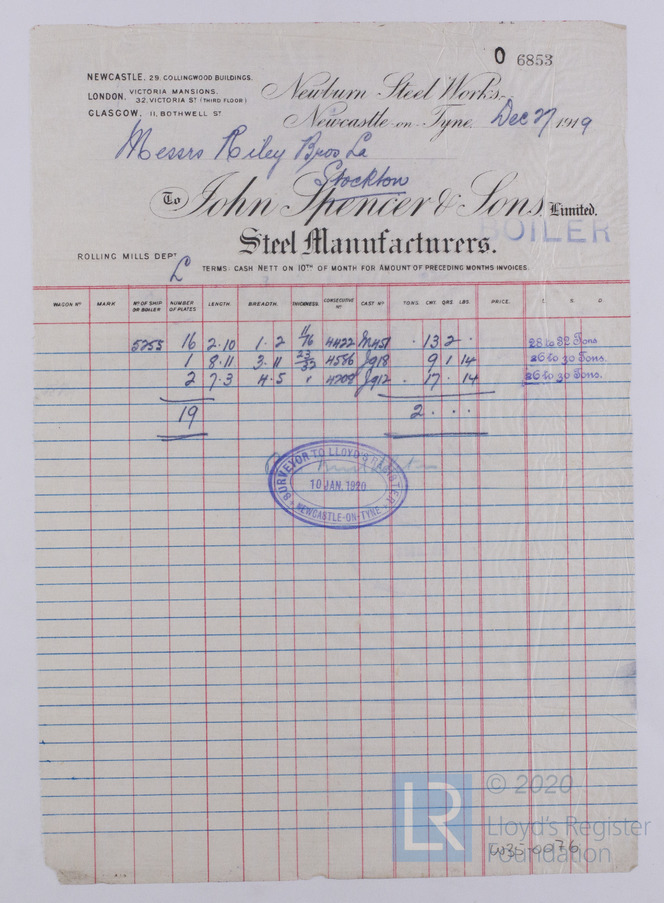 0 6853
NEWCASTLE. 29. COLLINGWOOD BUILDINGS.
LONDON. VICTORIA MANSIONS. 32, VICTORIA ST (THIRD FLOOR)
GLASGOW. 11, BOTHWELL ST
Newburn Steel Works
Newcastle-on-Tyne. Dec 27 1919
Messrs Riley Bros Ld
Stockton
To John Spencer & Sons, Limited.
BOILER
Steel Manufacturers.
ROLLING MILLS DEPT
L
TERMS: CASH NETT ON 10TH OF MONTH FOR AMOUNT OF PRECEDING MONTHS INVOICES.
WAGON No MARK No OF SHIP OR BOILER NUMBER OF PLATES LENGTH. BREADTH. THICKNESS. CONSECUTIVE No CAST No TONS. CWT. QRS. LBS. PRICE. £. S. D.
5255 16 2.10 1.2 11/16 4422 M451 . 13 2 . 28 to 32 Tons
1 8.11 3.11 23/32 4556 J918 9 1 14 26 to 30 Tons.
2 7.3 4.5 " 4209 J912 . 17 . 14 26 to 30 Tons.
19 2 . . .
SURVEYOR TO LLOYD'S REGISTER
10 JAN. 1920
NEWCASTLE-ON-TYNE
LR
© 2020
Lloyd's Register
Foundation
W35-0076